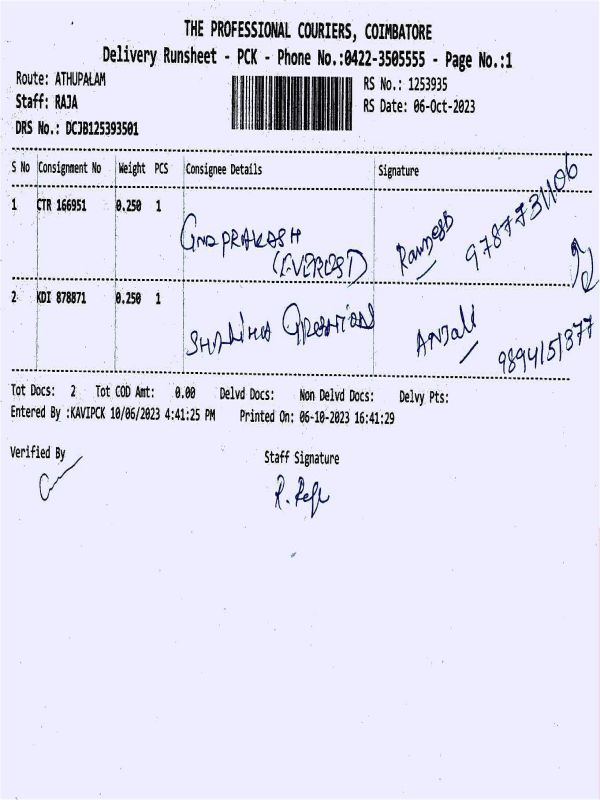 THE PROFESSIONAL COURIERS, COIMBATORE
Delivery Runsheet - PCK - Phone No.:0422-3505555 - Page No.:1
Route: ATHUPALAM RS No.: 1253935
Staff: RAJA RS Date: 06-Oct-2023
DRS No.: DCJB125393501
S No Consignment No Weight PCS Consignee Details Signature
1 CTR 166951 0.250 1
(EVEREST) 9787731106
2 KDI 878871 0.250 1
ANJali 9894151377
Tot Docs: 2 Tot COD Amt: 0.00 Delvd Docs: Non Delvd Docs: Delvy Pts:
Entered By :KAVIPCK 10/06/2023 4:41:25 PM Printed On: 06-10-2023 16:41:29
Verified By Staff Signature